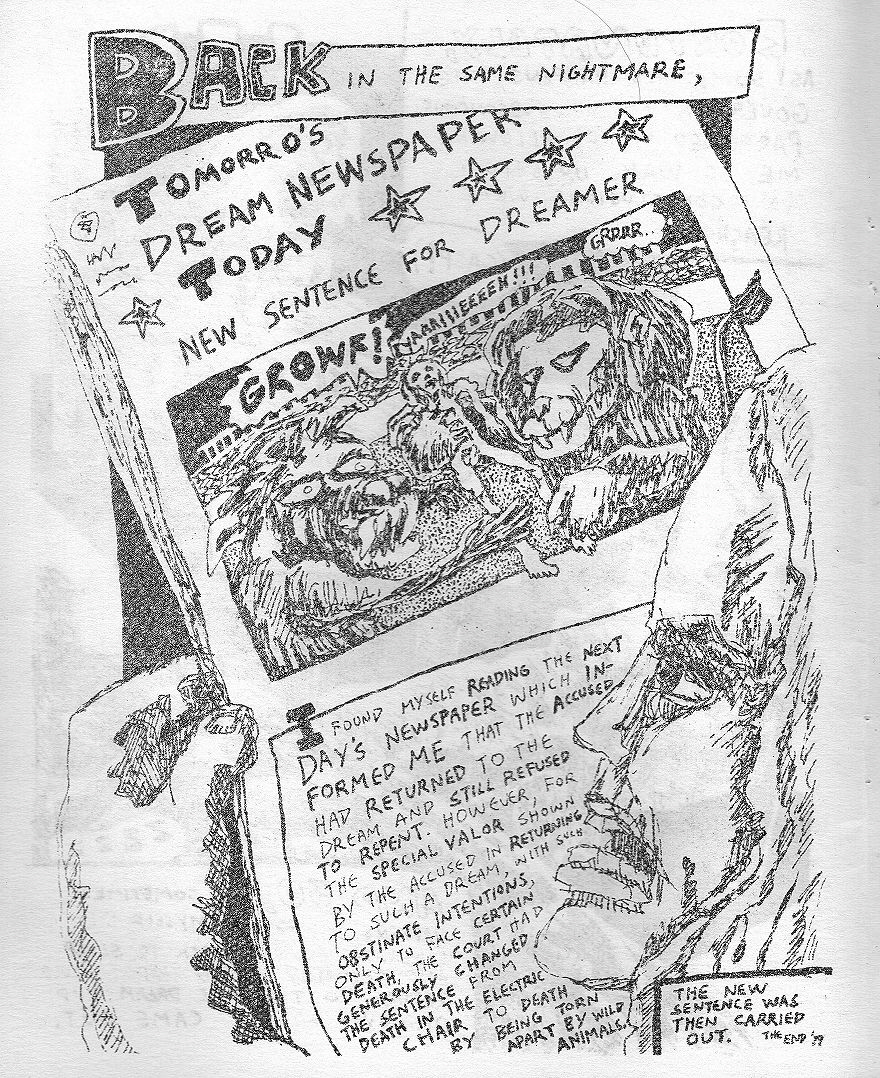 BACK IN THE SAME NIGHTMARE,
TOMORRO'S
DREAM NEWSPAPER
TODAY
NEW SENTENCE FOR DREAMER
GROWF!
GRRRR..
I FOUND MYSELF READING THE NEXT
DAY'S NEWSPAPER WHICH IN-
FORMED ME THAT THE ACCUSED
HAD RETURNED TO THE
DREAM AND STILL REFUSED
TO REPENT. HOWEVER, FOR
THE SPECIAL VALOR SHOWN
BY THE ACCUSED IN RETURNING
TO SUCH A DREAM, WITH SUCH
OBSTINATE INTENTIONS,
ONLY TO FACE CERTAIN
DEATH, THE COURT HAD
GENEROUSLY CHANGED
THE SENTENCE FROM
DEATH IN THE ELECTRIC
CHAIR TO DEATH
BY BEING TORN
APART BY WILD
ANIMALS.
THE NEW
SENTENCE WAS
THEN CARRIED
OUT. THE END '79